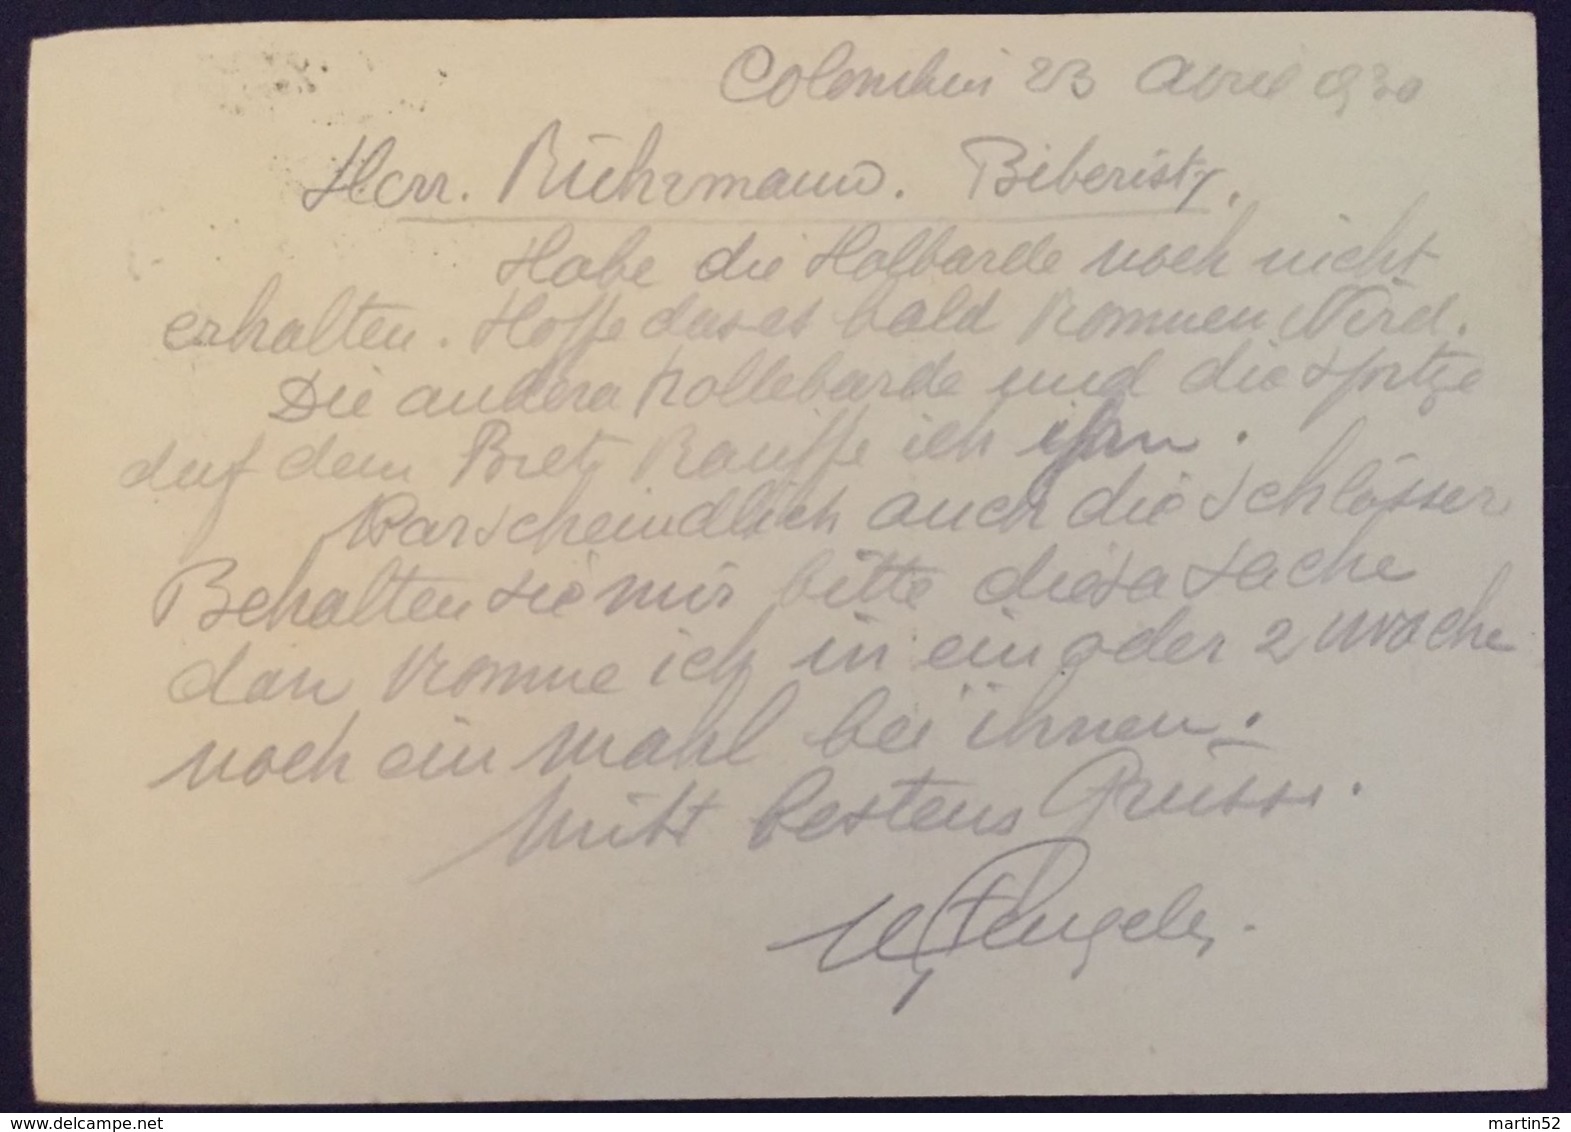 Colombier 23 Avril 1930
Herr. Rührmann. Biberist.
Habe die Halbarde noch nicht
erhalten. Hoffe das es bald kommen Wird.
Die andera hollebarde und die spitze
auf dem Bret kauffe ich
Warscheindlich auch die schlösser
Behalten sie mir bitte diesa sache
dan komme ich in ein oder 2 woche
noch ein mahl bei ihnen.
Mitt bestens Grüsse.
www.delcampe.net
martin52